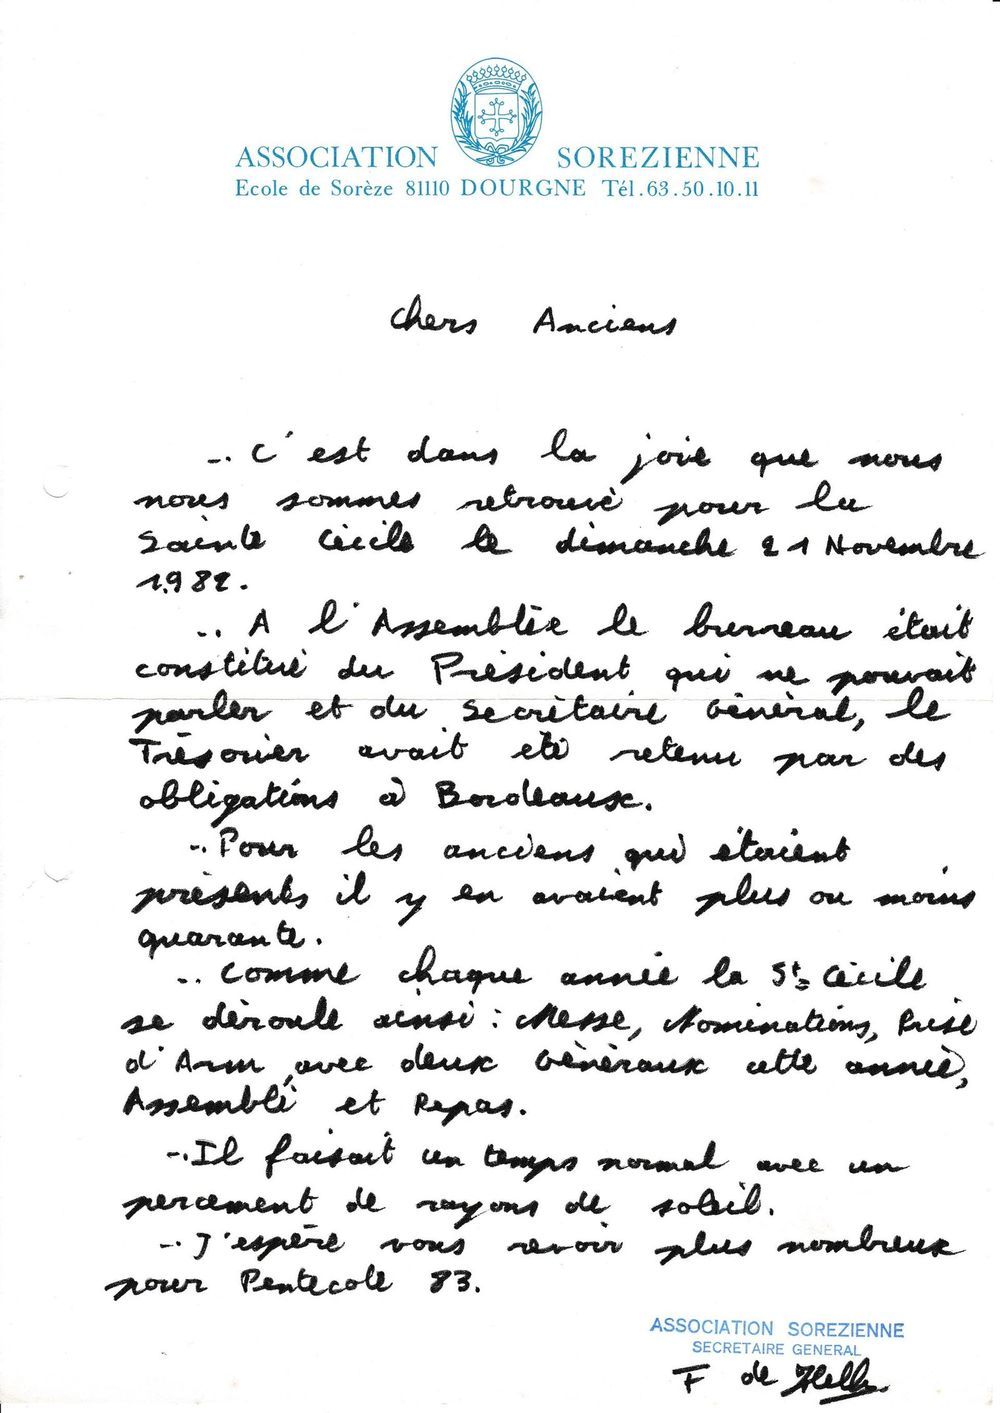 ASSOCIATION SOREZIENNE
Ecole de Sorèze 81110 DOURGNE Tél.63.50.10.11
Chers Anciens
-. C'est dans la joie que nous
nous sommes retrouvé pour la
Sainte Cécile le dimanche 21 Novembre
1982.
-. A l'Assemblée le bureau était
constitué du Président qui ne pouvait
parler et du Secrétaire Général, le
Trésorier avait été retenu par des
obligations à Bordeaux.
-. Pour les anciens qui étaient
présents il y en avaient plus ou moins
quarante.
-. Comme chaque année la Ste Cécile
se déroule ainsi : Messe, Nominations, Prise
d'Arm, avec deux Généraux cette année,
Assemblé et Repas.
-. Il faisait un temps normal avec un
percement de rayons de soleil.
-. J'espère vous revoir plus nombreux
pour Pentecote 83.
ASSOCIATION SOREZIENNE
SECRETAIRE GENERAL
F de